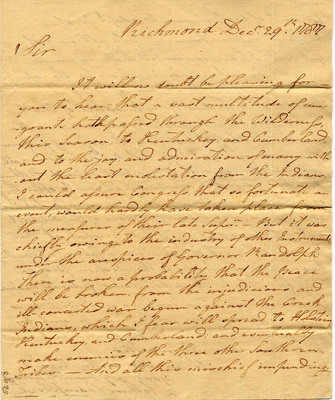 Richmond Decr. 29th. 1787
Sir
It will no doubt be pleasing for
you to hear that a vast multitude of emi-
grants hath passed through the Wilderness,
this Season to Kentuckey and Cumberland,
and to the joy and admiration of many with
out the least molestation from the Indians
I could assure Congress that so fortunate a
event, would hardly have taken place from
the measures of their late — But it was
chiefly owing to the industry of other Instruments,
under the auspices of Governor Randolph
There is now a probability that the Peace
will be broken, from the injudicious and
ill concerted war begun against the Creek
Indians, which I fear will spread to Holstein
Kentuckey, and Cumberland and eventually
make enemies of the three other Southern
Tribes — And all this mischief impending